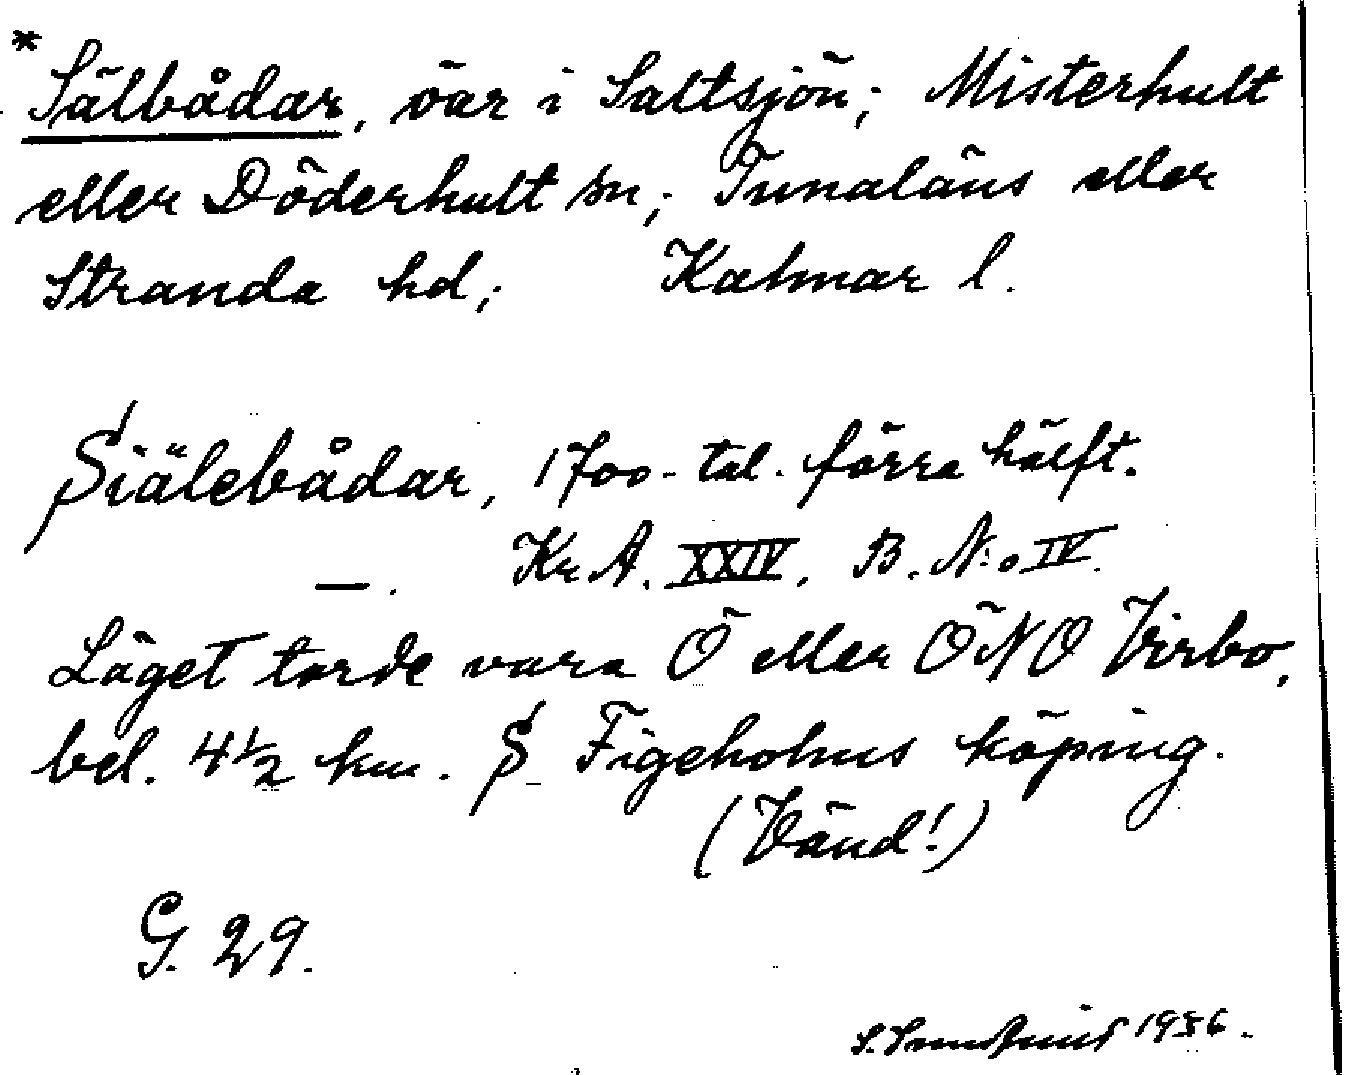 * Sälbådar, öar i Saltsjön; Misterhult
eller Döderhult sn; Tunaläns eller
Stranda hd; Kalmar l.
Siälebådar, 1700-tal. förra hälft.
—. Kr A. XXIV. B. N:o IV.
Läget torde vara Ö eller ÖNO Virbo,
bel. 4 1/2 km. S Figeholms köping.
(Vänd!)
G. 29.
1936.